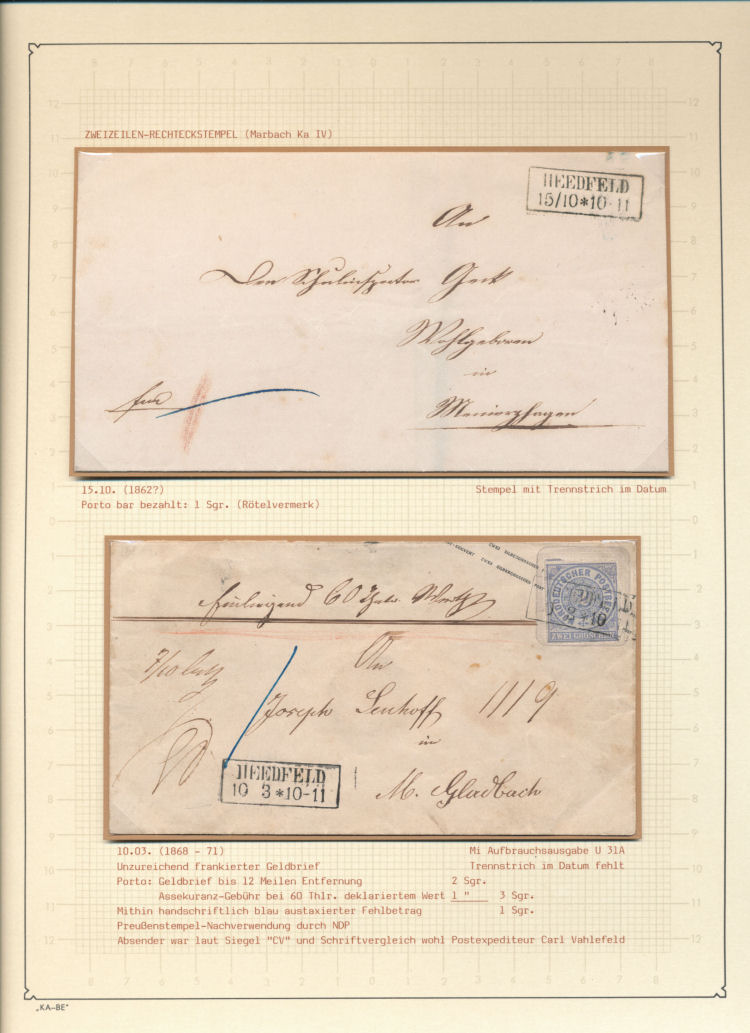 ZWEIZEILEN-RECHTECKSTEMPEL (Marbach Ka IV)
HEEDFELD
15/10*10-11
An
Den Schulinspector Geck
Wohlgeboren
in
15.10. (1862?)
Stempel mit Trennstrich im Datum
Porto bar bezahlt: 1 Sgr. (Rötelvermerk)
NORDDEUTSCHER POSTBEZIRK
ZWEI GROSCHEN
Einliegend 60 Thlr.
An
Joseph Lenhoff 1119
in
HEEDFELD
10 3*10-11
M. Gladbach
10.03. (1868 - 71)
Mi Aufbrauchsausgabe U 31A
Unzureichend frankierter Geldbrief
Trennstrich im Datum fehlt
Porto: Geldbrief bis 12 Meilen Entfernung 2 Sgr.
Assekuranz-Gebühr bei 60 Thlr. deklariertem Wert 1 " 3 Sgr.
Mithin handschriftlich blau austaxierter Fehlbetrag 1 Sgr.
Preußenstempel-Nachverwendung durch NDP
Absender war laut Siegel "CV" und Schriftvergleich wohl Postexpediteur Carl Vahlefeld
„KA-BE"